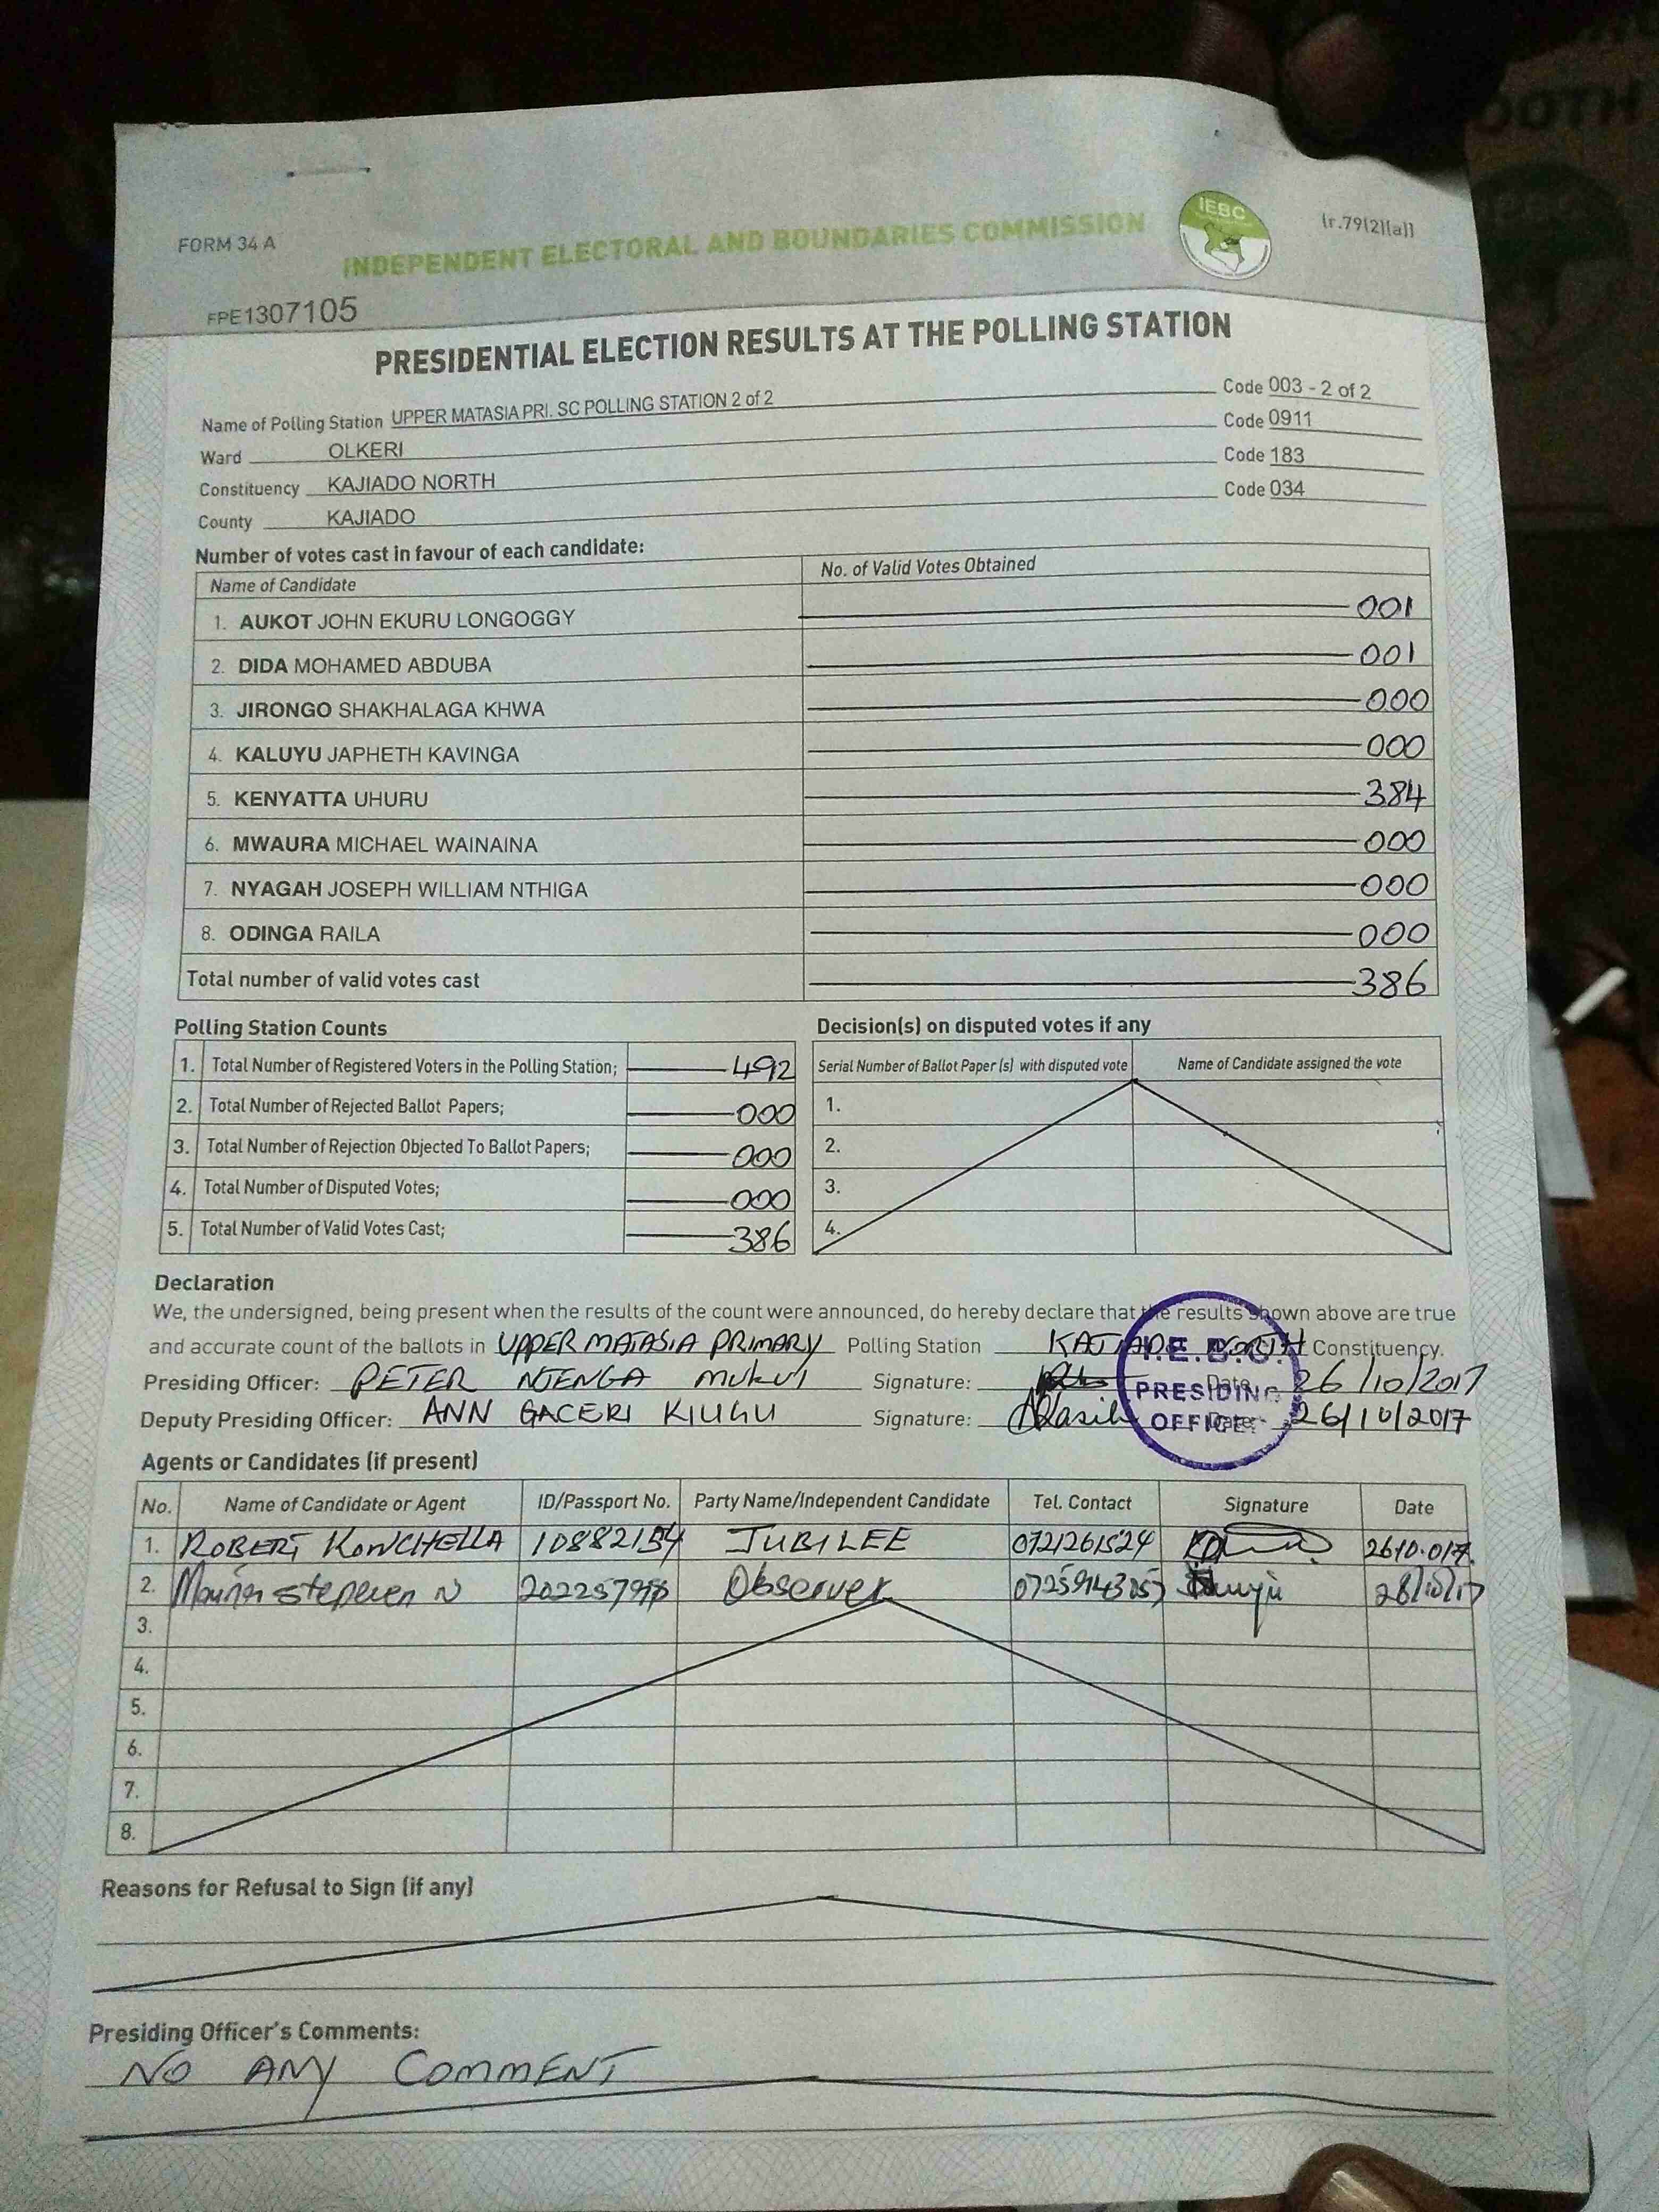 FORM 34 A
INDEPENDENT ELECTORAL AND BOUNDARIES COMMISSION
IEBC
(r.79(2)(a))
FPE1307105
PRESIDENTIAL ELECTION RESULTS AT THE POLLING STATION
Name of Polling Station UPPER MATASIA PRI. SC POLLING STATION 2 of 2 Code 003 - 2 of 2
Ward OLKERI Code 0911
Constituency KAJIADO NORTH Code 183
County KAJIADO Code 034
Number of votes cast in favour of each candidate:
Name of Candidate No. of Valid Votes Obtained
1. AUKOT JOHN EKURU LONGOGGY 001
2. DIDA MOHAMED ABDUBA 001
3. JIRONGO SHAKHALAGA KHWA 000
4. KALUYU JAPHETH KAVINGA 000
5. KENYATTA UHURU 384
6. MWAURA MICHAEL WAINAINA 000
7. NYAGAH JOSEPH WILLIAM NTHIGA 000
8. ODINGA RAILA 000
Total number of valid votes cast 386
Polling Station Counts
1. Total Number of Registered Voters in the Polling Station; 492
2. Total Number of Rejected Ballot Papers; 000
3. Total Number of Rejection Objected To Ballot Papers; 000
4. Total Number of Disputed Votes; 000
5. Total Number of Valid Votes Cast; 386
Decision(s) on disputed votes if any
Serial Number of Ballot Paper (s) with disputed vote Name of Candidate assigned the vote
1.
2.
3.
4.
Declaration
We, the undersigned, being present when the results of the count were announced, do hereby declare that the results shown above are true
and accurate count of the ballots in UPPER MATASIA PRIMARY Polling Station KAJIADO NORTH Constituency.
Presiding Officer: PETER NJENGA Signature: Date 26/10/2017
Deputy Presiding Officer: ANN GACERI KIUGU Signature: Date: 26/10/2017
I.E.B.C.
PRESIDING
OFFICER
Agents or Candidates (if present)
No. Name of Candidate or Agent ID/Passport No. Party Name/Independent Candidate Tel. Contact Signature Date
1. ROBERT KONCHELLA JUBILEE 0721261524
2. Observer
3.
4.
5.
6.
7.
8.
Reasons for Refusal to Sign (if any)
Presiding Officer's Comments:
NO ANY COMMENT
OOTH